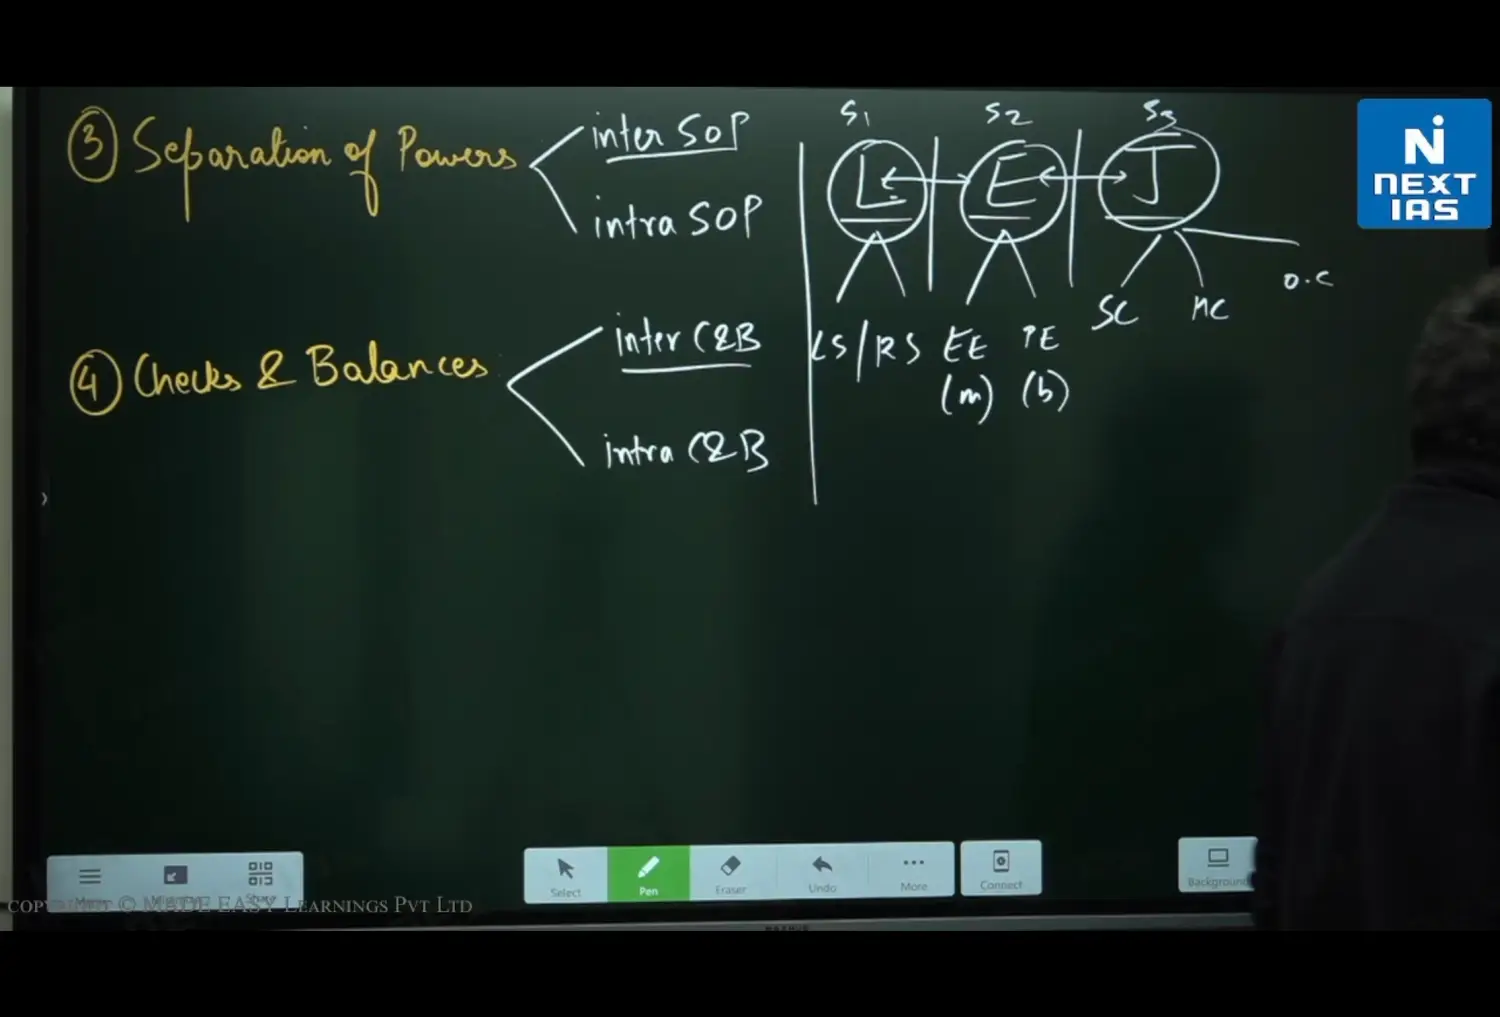 ③ Separation of Powers
inter SOP
intra SOP
④ Checks & Balances
inter C&B
intra C&B
S1 S2 S3
L E J
LS/RS EE PE SC HC O.C
(m) (b)
NEXT
IAS
Select
Pen
Eraser
Undo
More
Connect
Background
COPYRIGHT © MADE EASY LEARNINGS PVT LTD